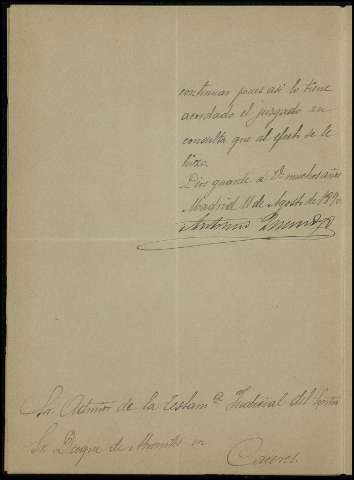 continuar pues asi lo tiene
acordado el juzgado en
consulta que al efecto se le
hizo.
Dios guarde á Vd. muchos años
Madrid 11 de Agosto de 1890
Antonio
Sr Admor de la Testamª Judicial del
Sr Duque de Abrantes en
Caceres.